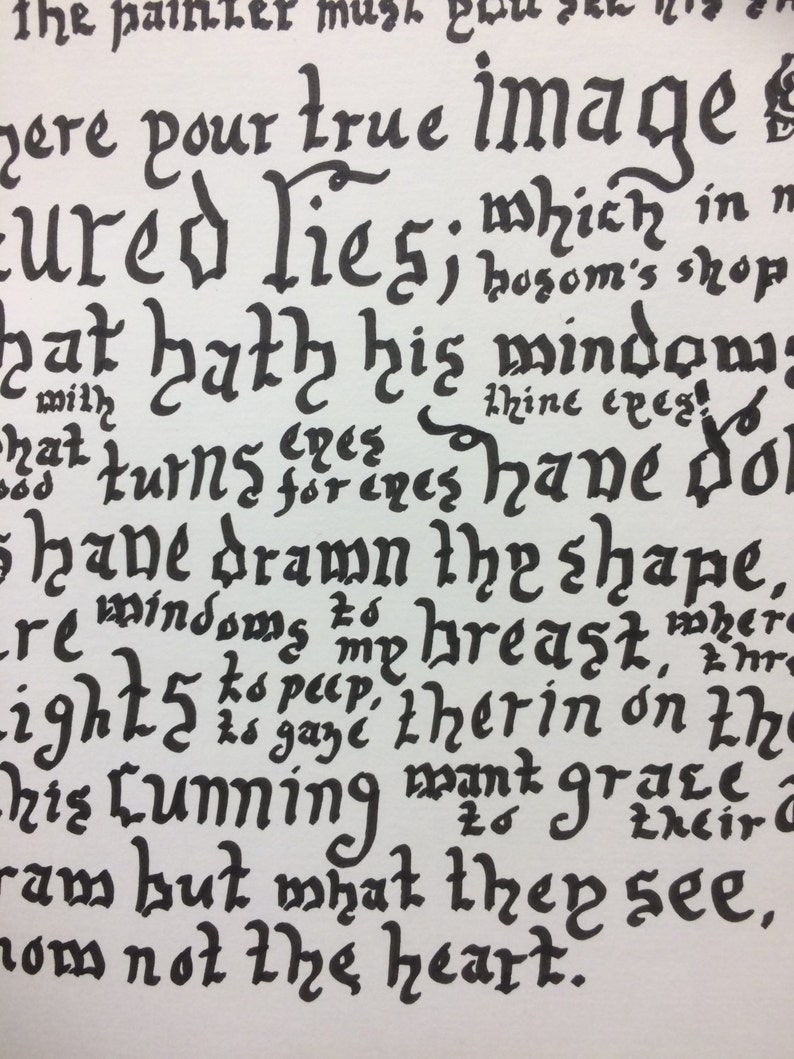 the painter must you see his
here your true image
tured lies; which in m
bosom's shop
hat hath his windows
with thine eyes!
hat turns eyes have do
ood for eyes
s have drawn thy shape,
re windows to my breast, where
thro
ights to peep, therin on the
to gaze
his cunning want grace
to their
raw but what they see,
now not the heart.